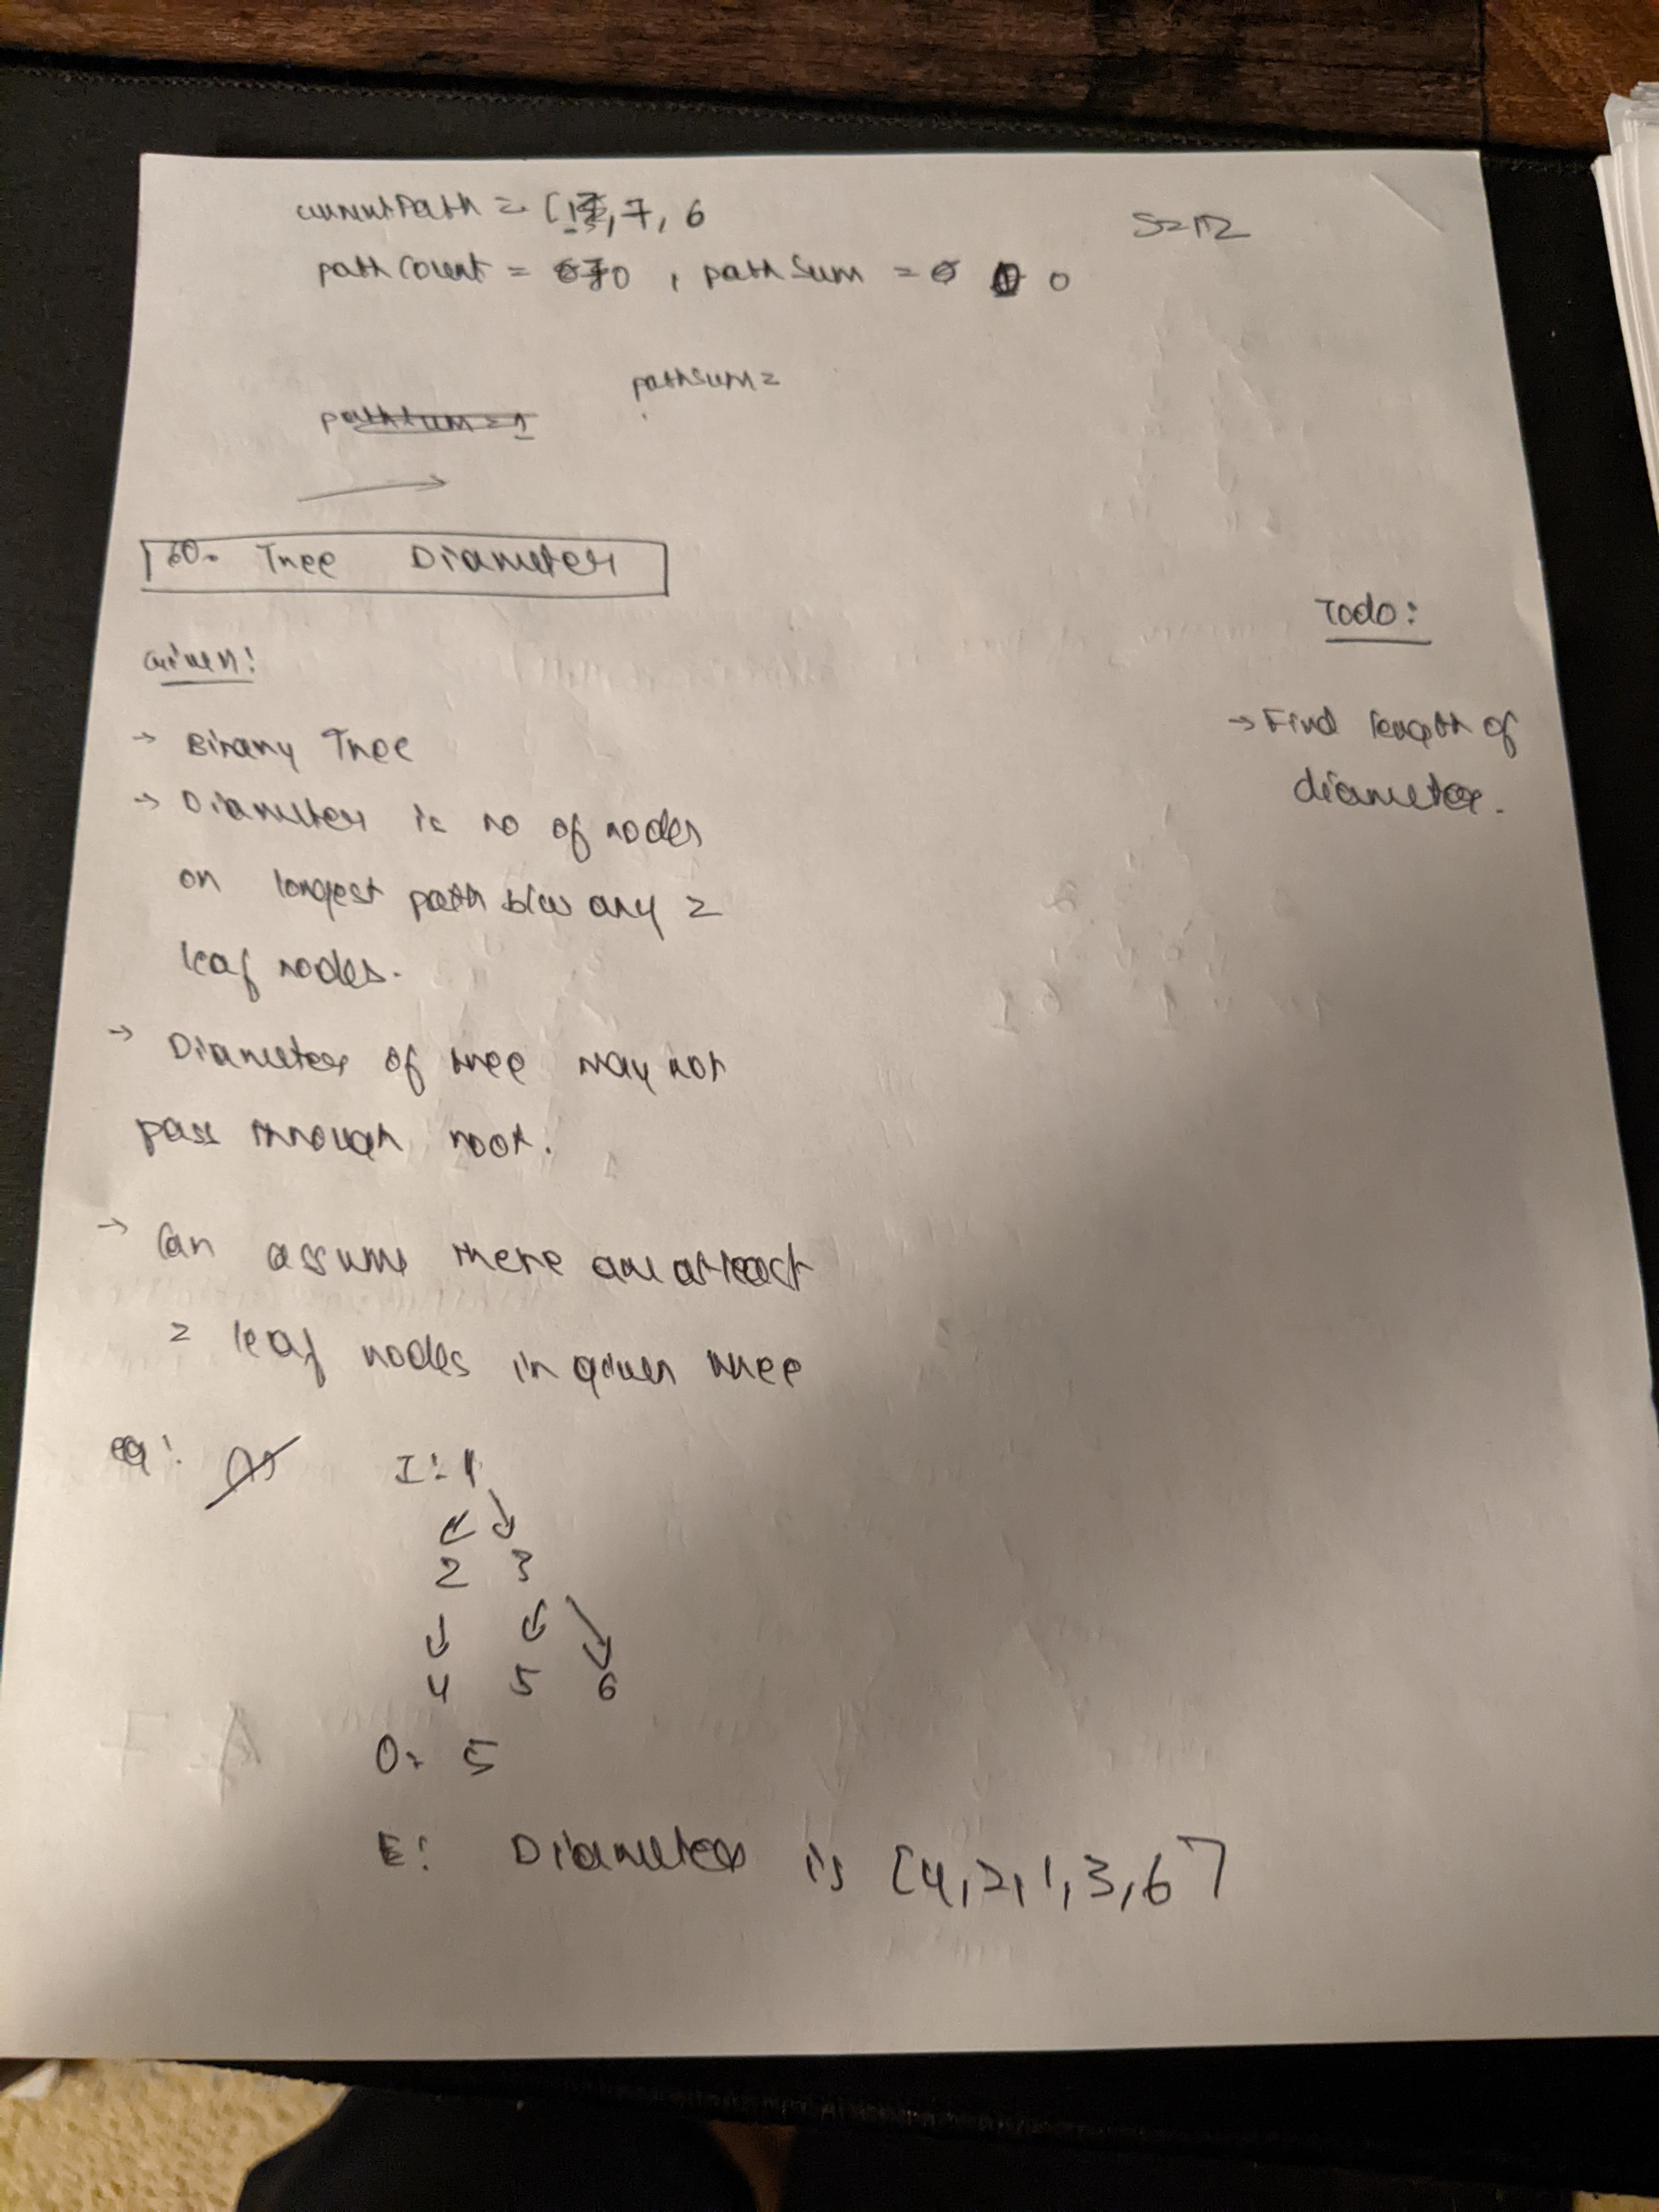 currentPath = [12, 7, 6
S=12
pathCount = 0 1 0 , pathSum = 0 0
pathSum =
pathSum = 1
60. Tree Diameter
Todo:
Given:
→ Find length of
diameter.
→ Binary Tree
→ Diameter is no of nodes
on longest path b/w any 2
leaf nodes.
→ Diameter of tree may not
pass through root.
→ Can assume there are atleast
2 leaf nodes in given tree
eg:
I: 1
2 3
4 5 6
O: 5
E: Diameter is [4,2,1,3,6]